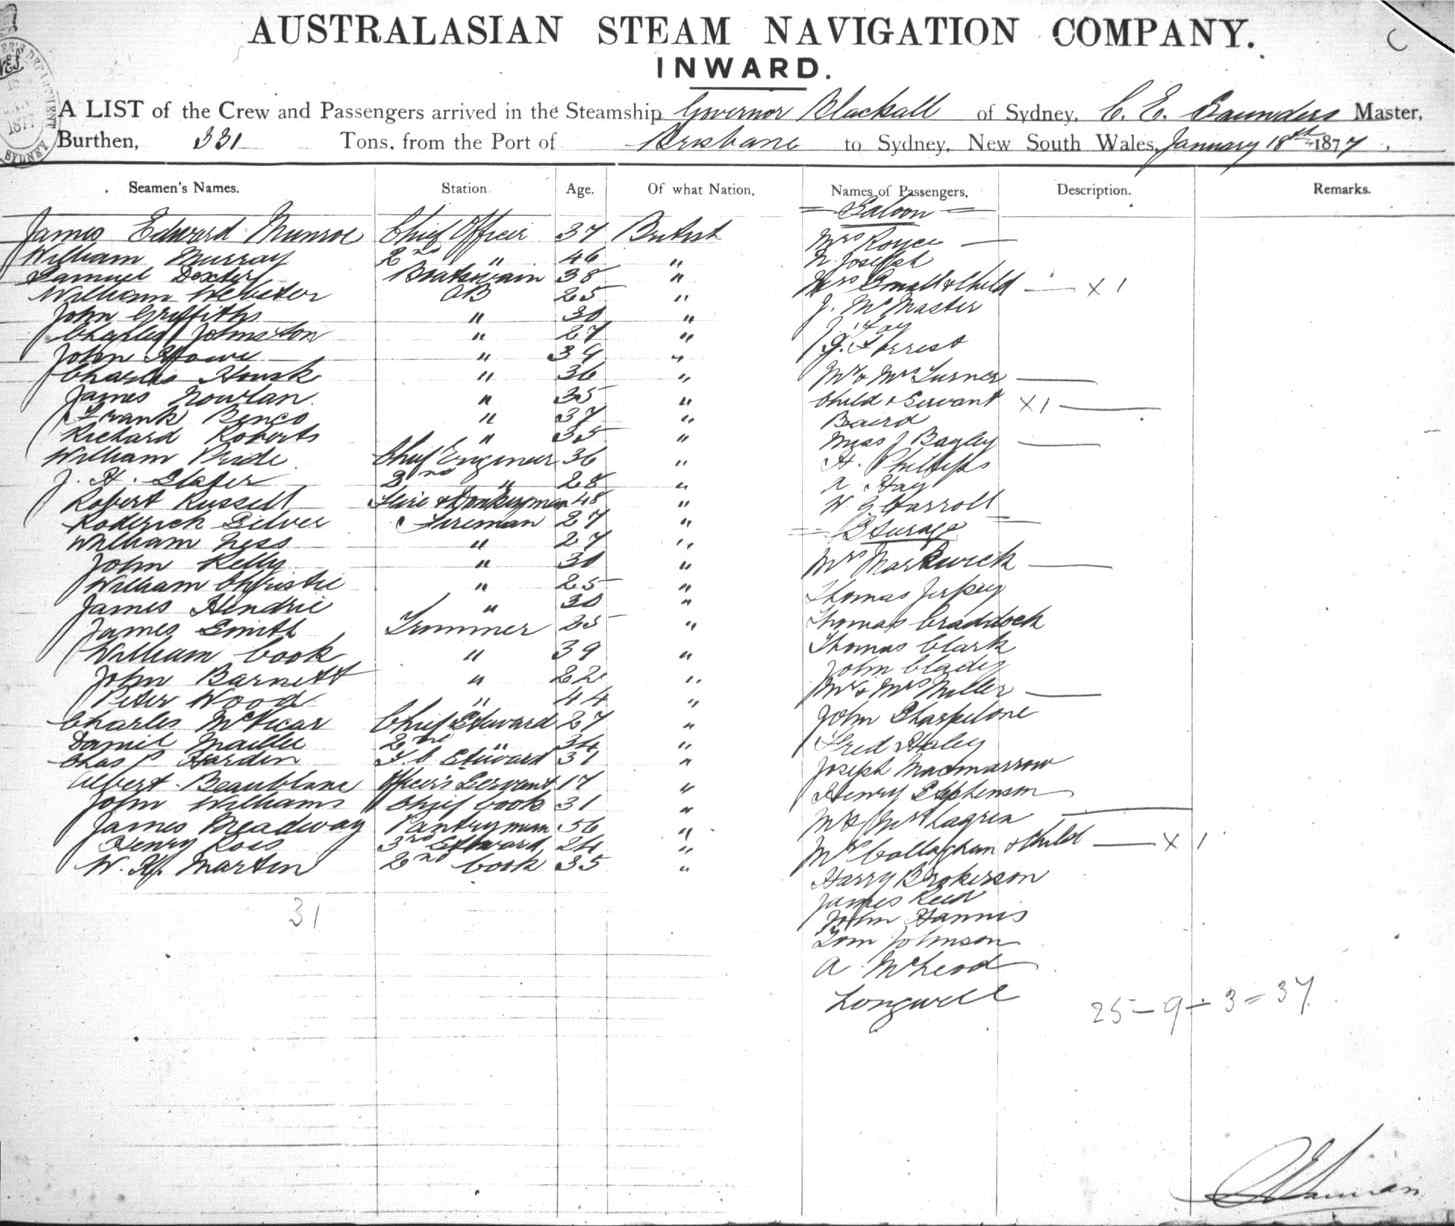 AUSTRALASIAN STEAM NAVIGATION COMPANY.
C
INWARD.
A LIST of the Crew and Passengers arrived in the Steamship Governor Blackall of Sydney, C. E. Saunders Master,
Burthen, 331 Tons, from the Port of Brisbane to Sydney, New South Wales, January 18th 1877.
Seamen's Names. Station Age. Of what Nation. Names of Passengers. Description. Remarks.
James Edward Munroe Chief Officer 37 British
William Murray 2nd " 46 "
Samuel Dexter Boatswain 38 "
William Webster AB 25 "
John Griffiths " 30 "
Charles Johnston " 27 "
John Howe " 39 "
Charles Housk " 36 "
James Nowlan " 35 "
Frank Benco " 37 "
Richard Roberts " 35 "
William Pride Chief Engineer 36 "
J. H. Slater 2nd " 28 "
Robert Russell Fire & Donkeyman 48 "
Roderick Silver Fireman 27 "
William Ness " 27 "
John Kelly " 30 "
William Christie " 25 "
James Hendrie " 30 "
James Smith Trimmer 25 "
William Cook " 39 "
John Barnett " 22 "
Peter Wood " 44 "
Charles McVicar Chief Steward 27 "
Daniel Maillie 2nd " 34 "
Chas P Harden F. C. Steward 37 "
Albert Beaublane Officer's Servant 17 "
John Williams Chief Cook 31 "
James Breadway Pantryman 56 "
Henry Rois 3rd Steward 24 "
W. H. Martin 2nd Cook 35 "
31
Saloon
Mrs Royce
N Joseph
Mrs Small & Child x 1
J. McMaster
J. Forrest
Mr & Mrs Turner
Child & Servant x 1
Baird
Miss J Bagley
H. Phillips
A Hay
W G Carroll
Steerage
Mrs Markwick
Thomas
Thomas Craddock
Thomas Clark
John
Mr & Mrs Miller
John Sharpelone
Fred Haley
Joseph Macmarrow
Henry Stephenson
Mrs
Mrs Callaghan & Child x 1
Harry Brokerson
James Reid
John Hannis
Tom Johnson
A McLeod
Longwell
25 - 9 - 3 = 37